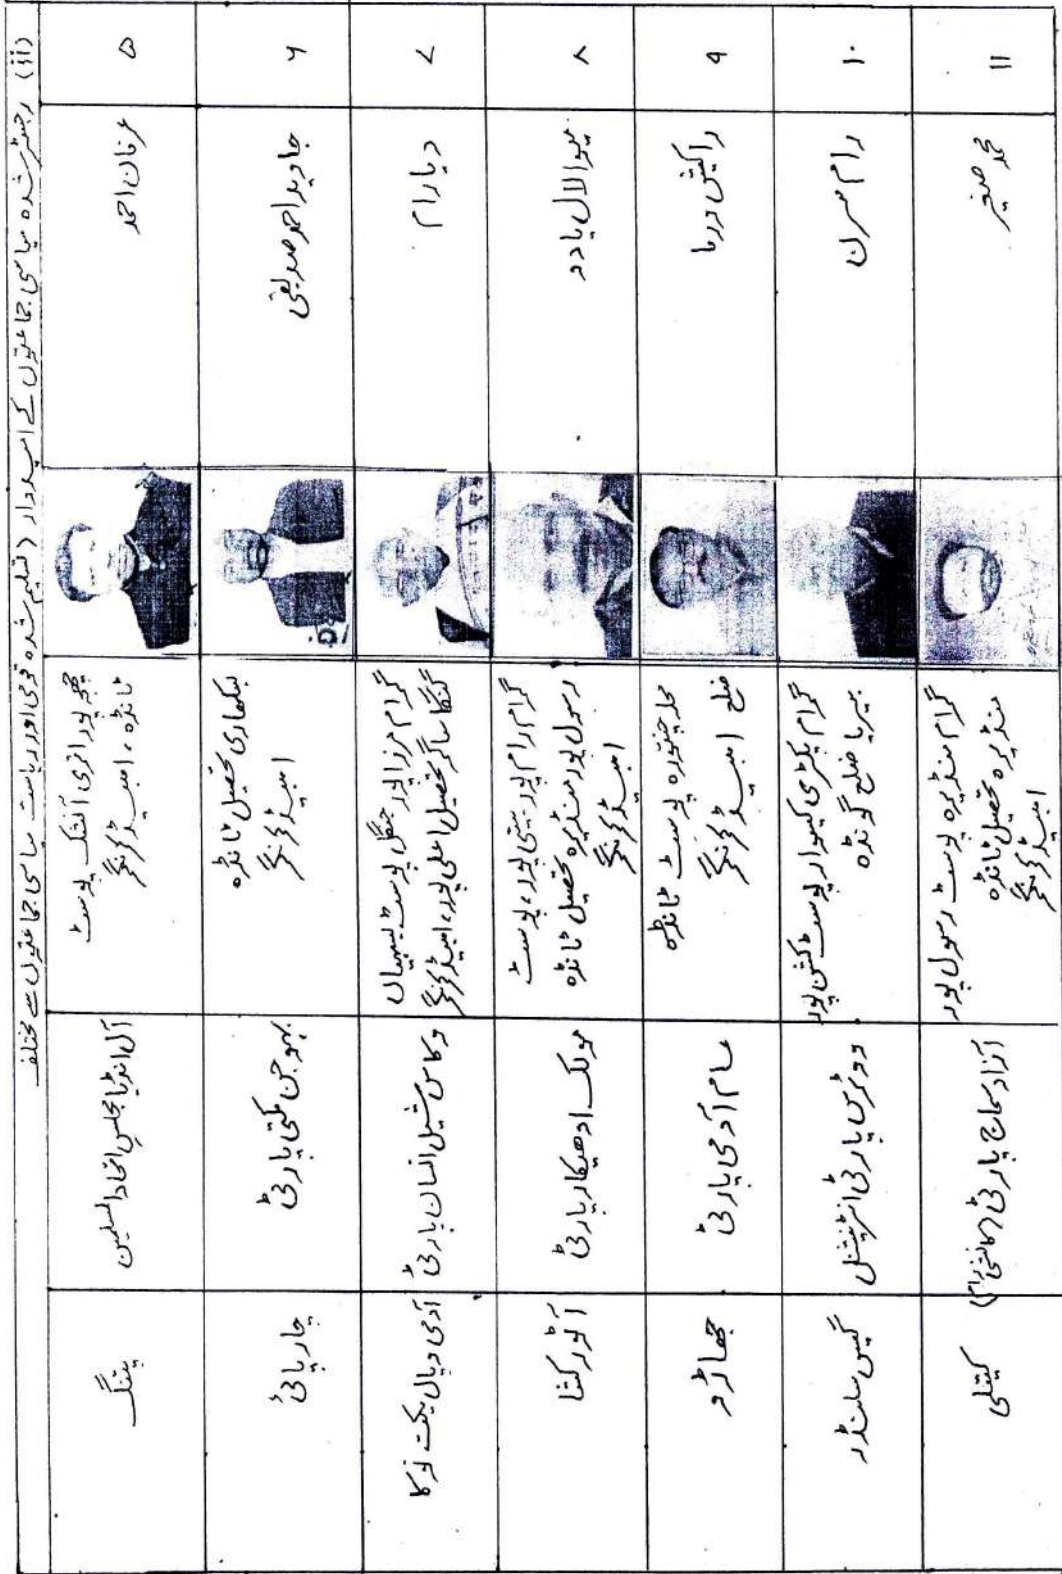 (ii) رجسٹر شدہ سیاسی جماعتوں کے امیدوار (تسلیم شدہ قومی اور ریاست سیاسی جماعتوں سے مختلف
۵
عرفان احمد
ٹانڈہ ، امبیڈکرنگر
آل انڈیا مجلس اتحاد المسلمین
پتنگ
۶
جاوید احمد صدیقی
بیکھاری تحصیل ٹانڈہ
امبیڈکرنگر
بہوجن مکتی پارٹی
چارپائی
۷
دیارام
گرام مرزا پور جنگل پوسٹ
گنگا ساگر تحصیل اعلی پور، امبیڈکرنگر
وکاس شیل انسان پارٹی
آدمی و پال یکت نوکا
۸
میوالال یادو
گرام رام پور بینی پور، پوسٹ
رسول پور منڈیرہ تحصیل ٹانڈہ
امبیڈکرنگر
مولک ادھیکار پارٹی
آٹو رکشا
۹
راکیش ورما
محلہ چنتورہ پوسٹ ٹانڈہ
ضلع امبیڈکرنگر
عام آدمی پارٹی
جھاڑو
۱۰
رام سرن
گرام پوسٹ کشن پور
بیریا ضلع گونڈہ
ووٹرس پارٹی انٹرنیشنل
گیس سلنڈر
۱۱
محمد صغیر
گرام منڈیرہ پوسٹ رسول پور
منڈیرہ تحصیل ٹانڈہ
امبیڈکرنگر
آزاد سماج پارٹی (کانشی رام)
کیتلی